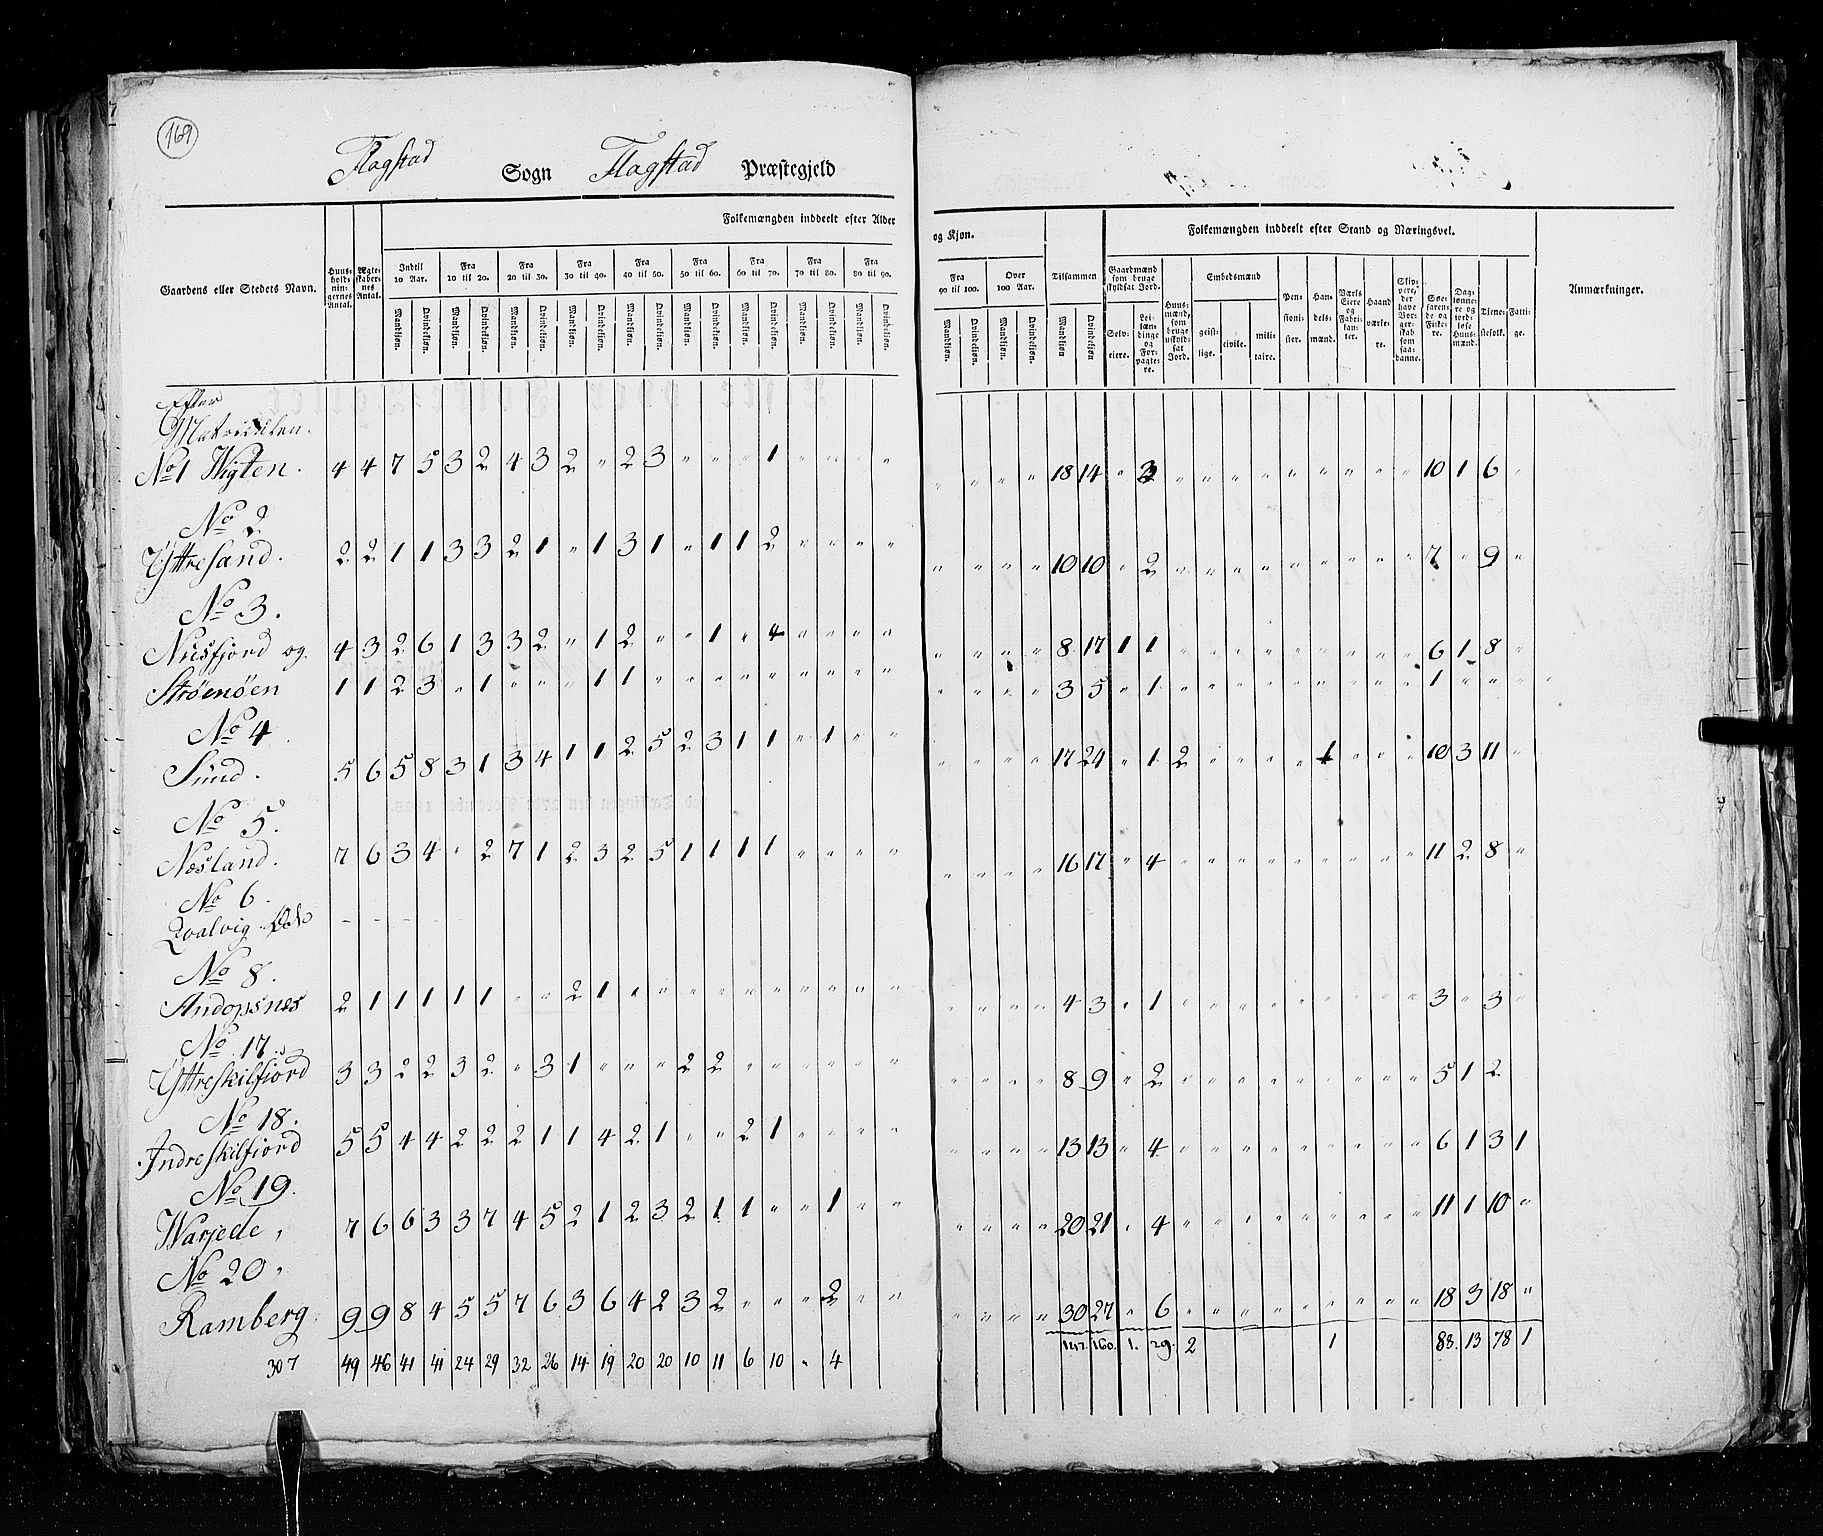 169
Flagstad Sogn Flagstad Præstegjeld
Folkemængden inddeelt efter Alder og Kjøn.
Folkemængden inddeelt efter Stand og Næringsvei.
Gaardens eller Stedets Navn.
Huusholdningernes Antal.
Ægteskabernes Antal.
Indtil 10 Aar.
Fra 10 til 20.
Fra 20 til 30.
Fra 30 til 40.
Fra 40 til 50.
Fra 50 til 60.
Fra 60 til 70.
Fra 70 til 80.
Fra 80 til 90.
Fra 90 til 100.
Over 100 Aar.
Tilsammen
Mandkjøn. Qvindekjøn.
Gaardmænd som bruge skyldsat Jord.
Selveiere.
Leilændinge og Forpagtere.
Huusmænd, som bruge uskyldsat Jord.
Embedsmænd
geistlige.
civile.
militaire.
Pensionister.
Handelsmænd.
Værkseiere og Fabrikanter.
Haandværkere.
Skippere, der have Borgerskab som saadanne.
Søefarende og Fiskere.
Daglønnere og jordløse Huusmænd.
Tjenestefolk.
Fattige.
Anmærkninger.
Efter
Matriculen.
No 1 Wigten. 4 4 7 5 3 2 4 3 2 " 2 3 " " " 1 " " " " " " " " 18 14 " 3 " " " " " " " " " 10 1 6 "
No 2
Yttresand. 2 2 1 1 3 3 2 1 " 1 3 1 " 1 1 2 " " " " " " " " 10 10 " 2 " " " " " " " " " 7 " 9 "
No 3.
Nusfjord og 4 3 2 6 1 3 3 2 " 1 2 " " 1 " 4 " " " " " " " " 8 17 1 1 " " " " " " " " " 6 1 8 "
Strøenøen 1 1 2 3 " 1 " " " 1 1 " " " " " " " " " " " " " 3 5 " 1 " " " " " " " " " 1 " " "
No 4
Sund. 5 6 5 8 3 1 3 4 1 1 2 5 2 3 1 1 " 1 " " " " " " 17 24 " 1 2 " " " " 1 " " " 10 3 11 "
No 5.
Næsland. 7 6 3 4 " 2 7 1 2 3 2 5 1 1 1 1 " " " " " " " " 16 17 " 4 " " " " " " " " " 11 2 8 "
No 6.
Qvalvig Øde
No 8.
Andopsnes 2 1 1 1 1 1 " " 2 1 " " " " " " " " " " " " " " 4 3 " 1 " " " " " " " " " 3 " 3 "
No 17.
Yttreskilfiord 3 3 2 2 3 2 " 3 1 " " " 2 2 " " " " " " " " " " 8 9 " 2 " " " " " " " " " 5 1 2
No 18.
Indreskilfiord 5 5 4 4 2 2 2 1 1 4 2 1 " " 2 1 " " " " " " " " 13 13 " 4 " " " " " " " " " 6 1 3 1
No 19.
Warjede, 7 6 6 3 3 7 4 5 2 1 2 3 2 1 1 " " 1 " " " " " " 20 21 " 4 " " " " " " " " " 11 1 10 "
No 20,
Ramberg 9 9 8 4 5 5 7 6 3 6 4 2 3 2 " " " 2 " " " " " " 30 27 " 6 " " " " " " " " " 18 3 18 "
307 49 46 41 41 24 29 32 26 14 19 20 20 10 11 6 10 " 4 147. 160. 1. 29. 2 1 88. 13 78 1